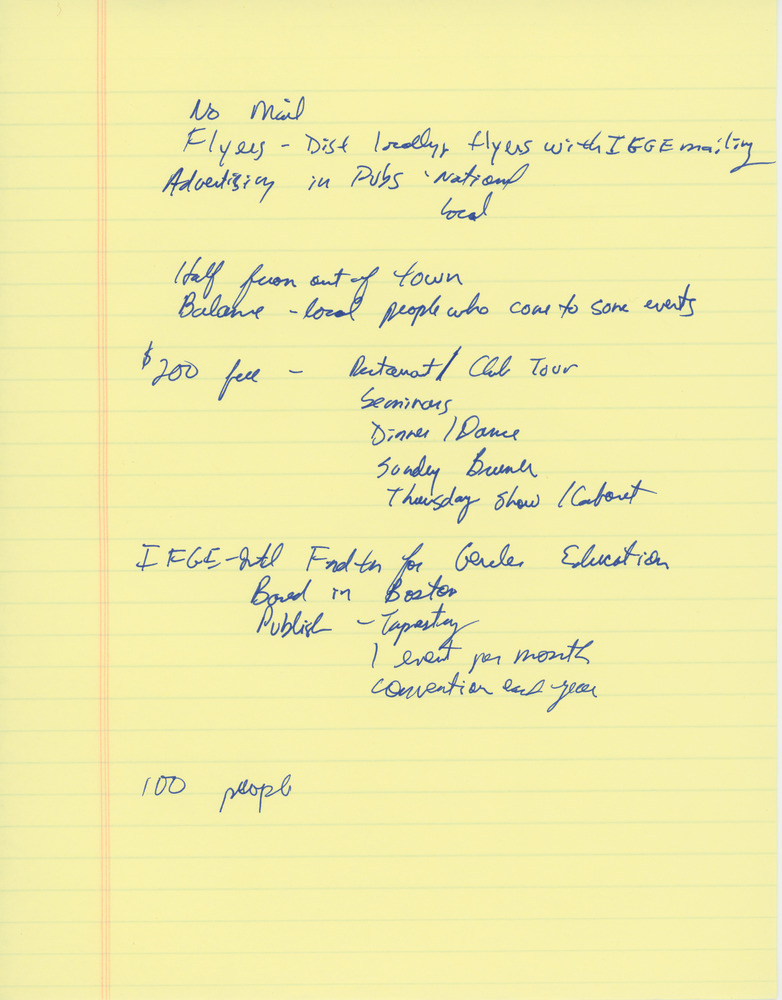 No Mail
Flyers - Dist locally, flyers with IFGE mailing
Advertising in Pubs - National
Local
Half from out of town
Balance - local people who come to some events
$200 fee - Restaurant / Club Tour
Seminars
Dinner / Dance
Sunday Brunch
Thursday show / Cabaret
IFGE - Intl Fndtn for Gender Education
Based in Boston
Publish - Tapestry
1 event per month
convention each year
100 people